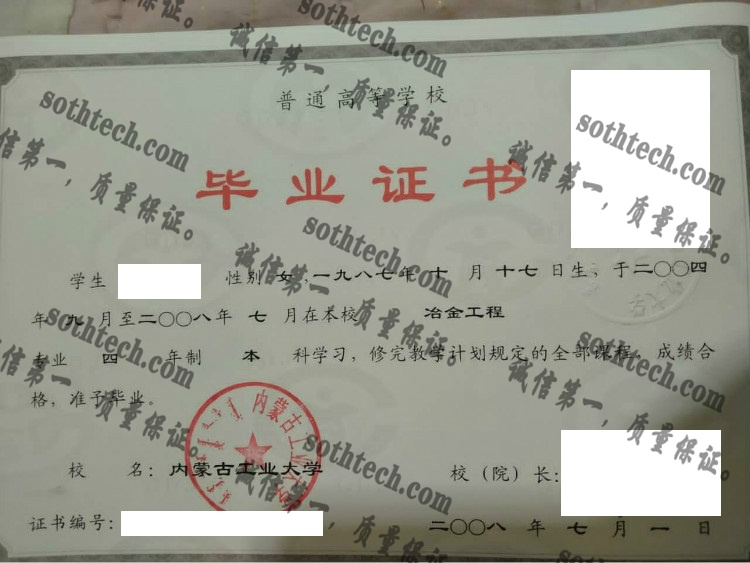 普通高等学校
毕业证书
学生 性别 女 ,一九八七年 十 月 十七 日生，于二〇〇四
年 九 月至二〇〇八年 七 月在本校 冶金工程
专业 四 年制 本 科学习，修完教学计划规定的全部课程，成绩合
格，准予毕业。
内蒙古工业大学
校 名：内蒙古工业大学 校（院）长：
证书编号： 二〇〇八 年 七 月 一 日
sothtech.com
诚信第一，质量保证。
sothtech.com
诚信第一，质量保证。
sothtech.com
诚信第一，质量保证。
sothtech.com
诚信第一，质量保证。
sothtech.com
诚信第一，质量保证。
sothtech.com
诚信第一，质量保证。
sothtech.com
sothtech.com